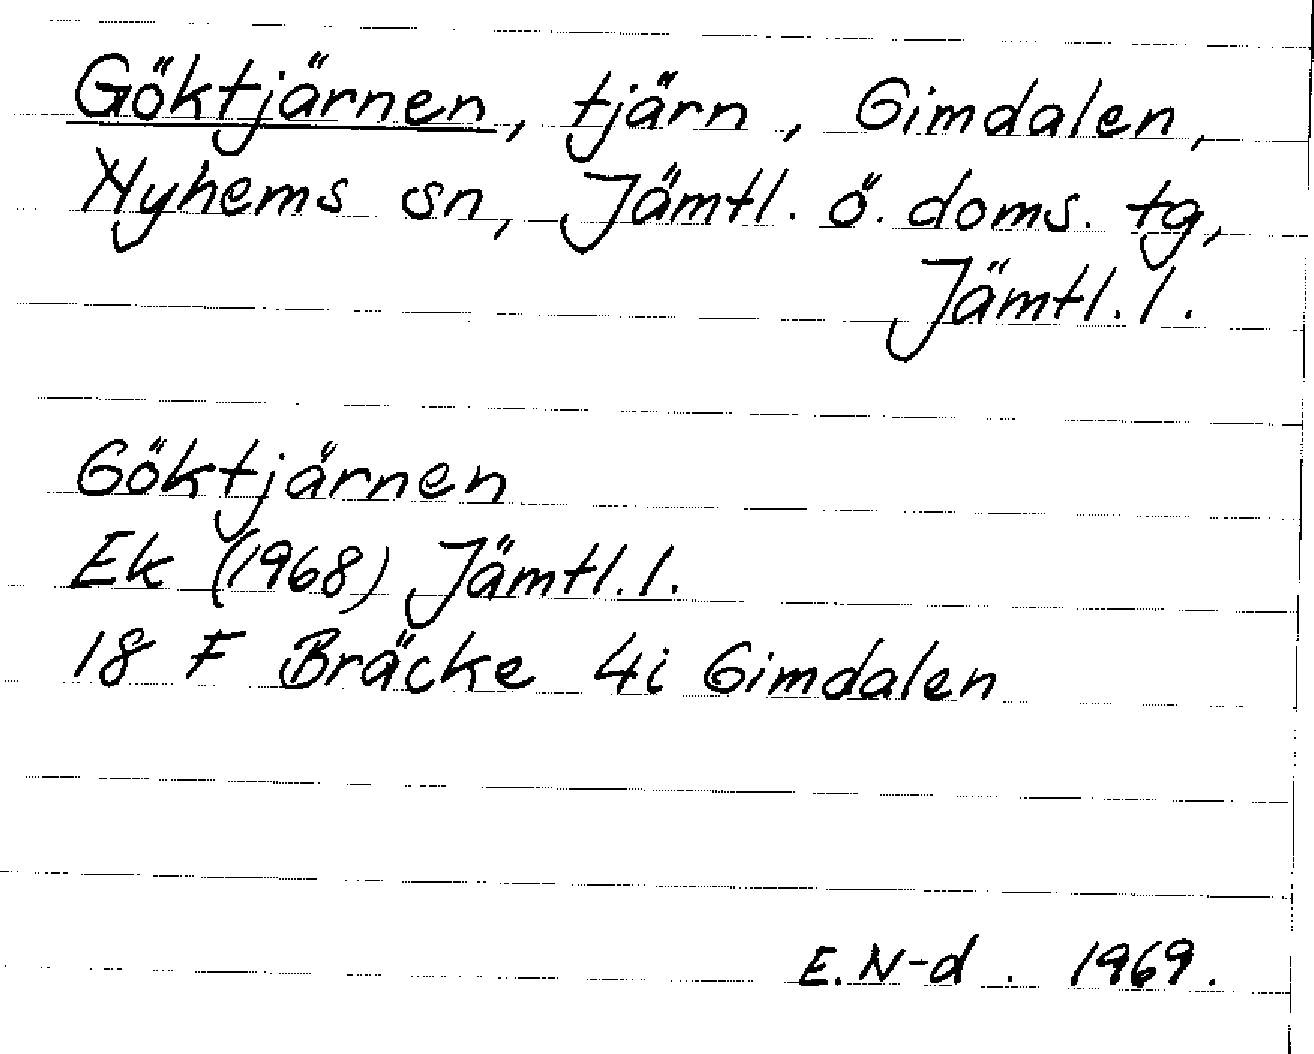 Göktjärnen, tjärn, Gimdalen,
Nyhems sn, Jämtl. ö. doms. tg,
Jämtl. l.
Göktjärnen
Ek (1968) Jämtl. l.
18 F Bräcke 4i Gimdalen
E. N-d. 1969.